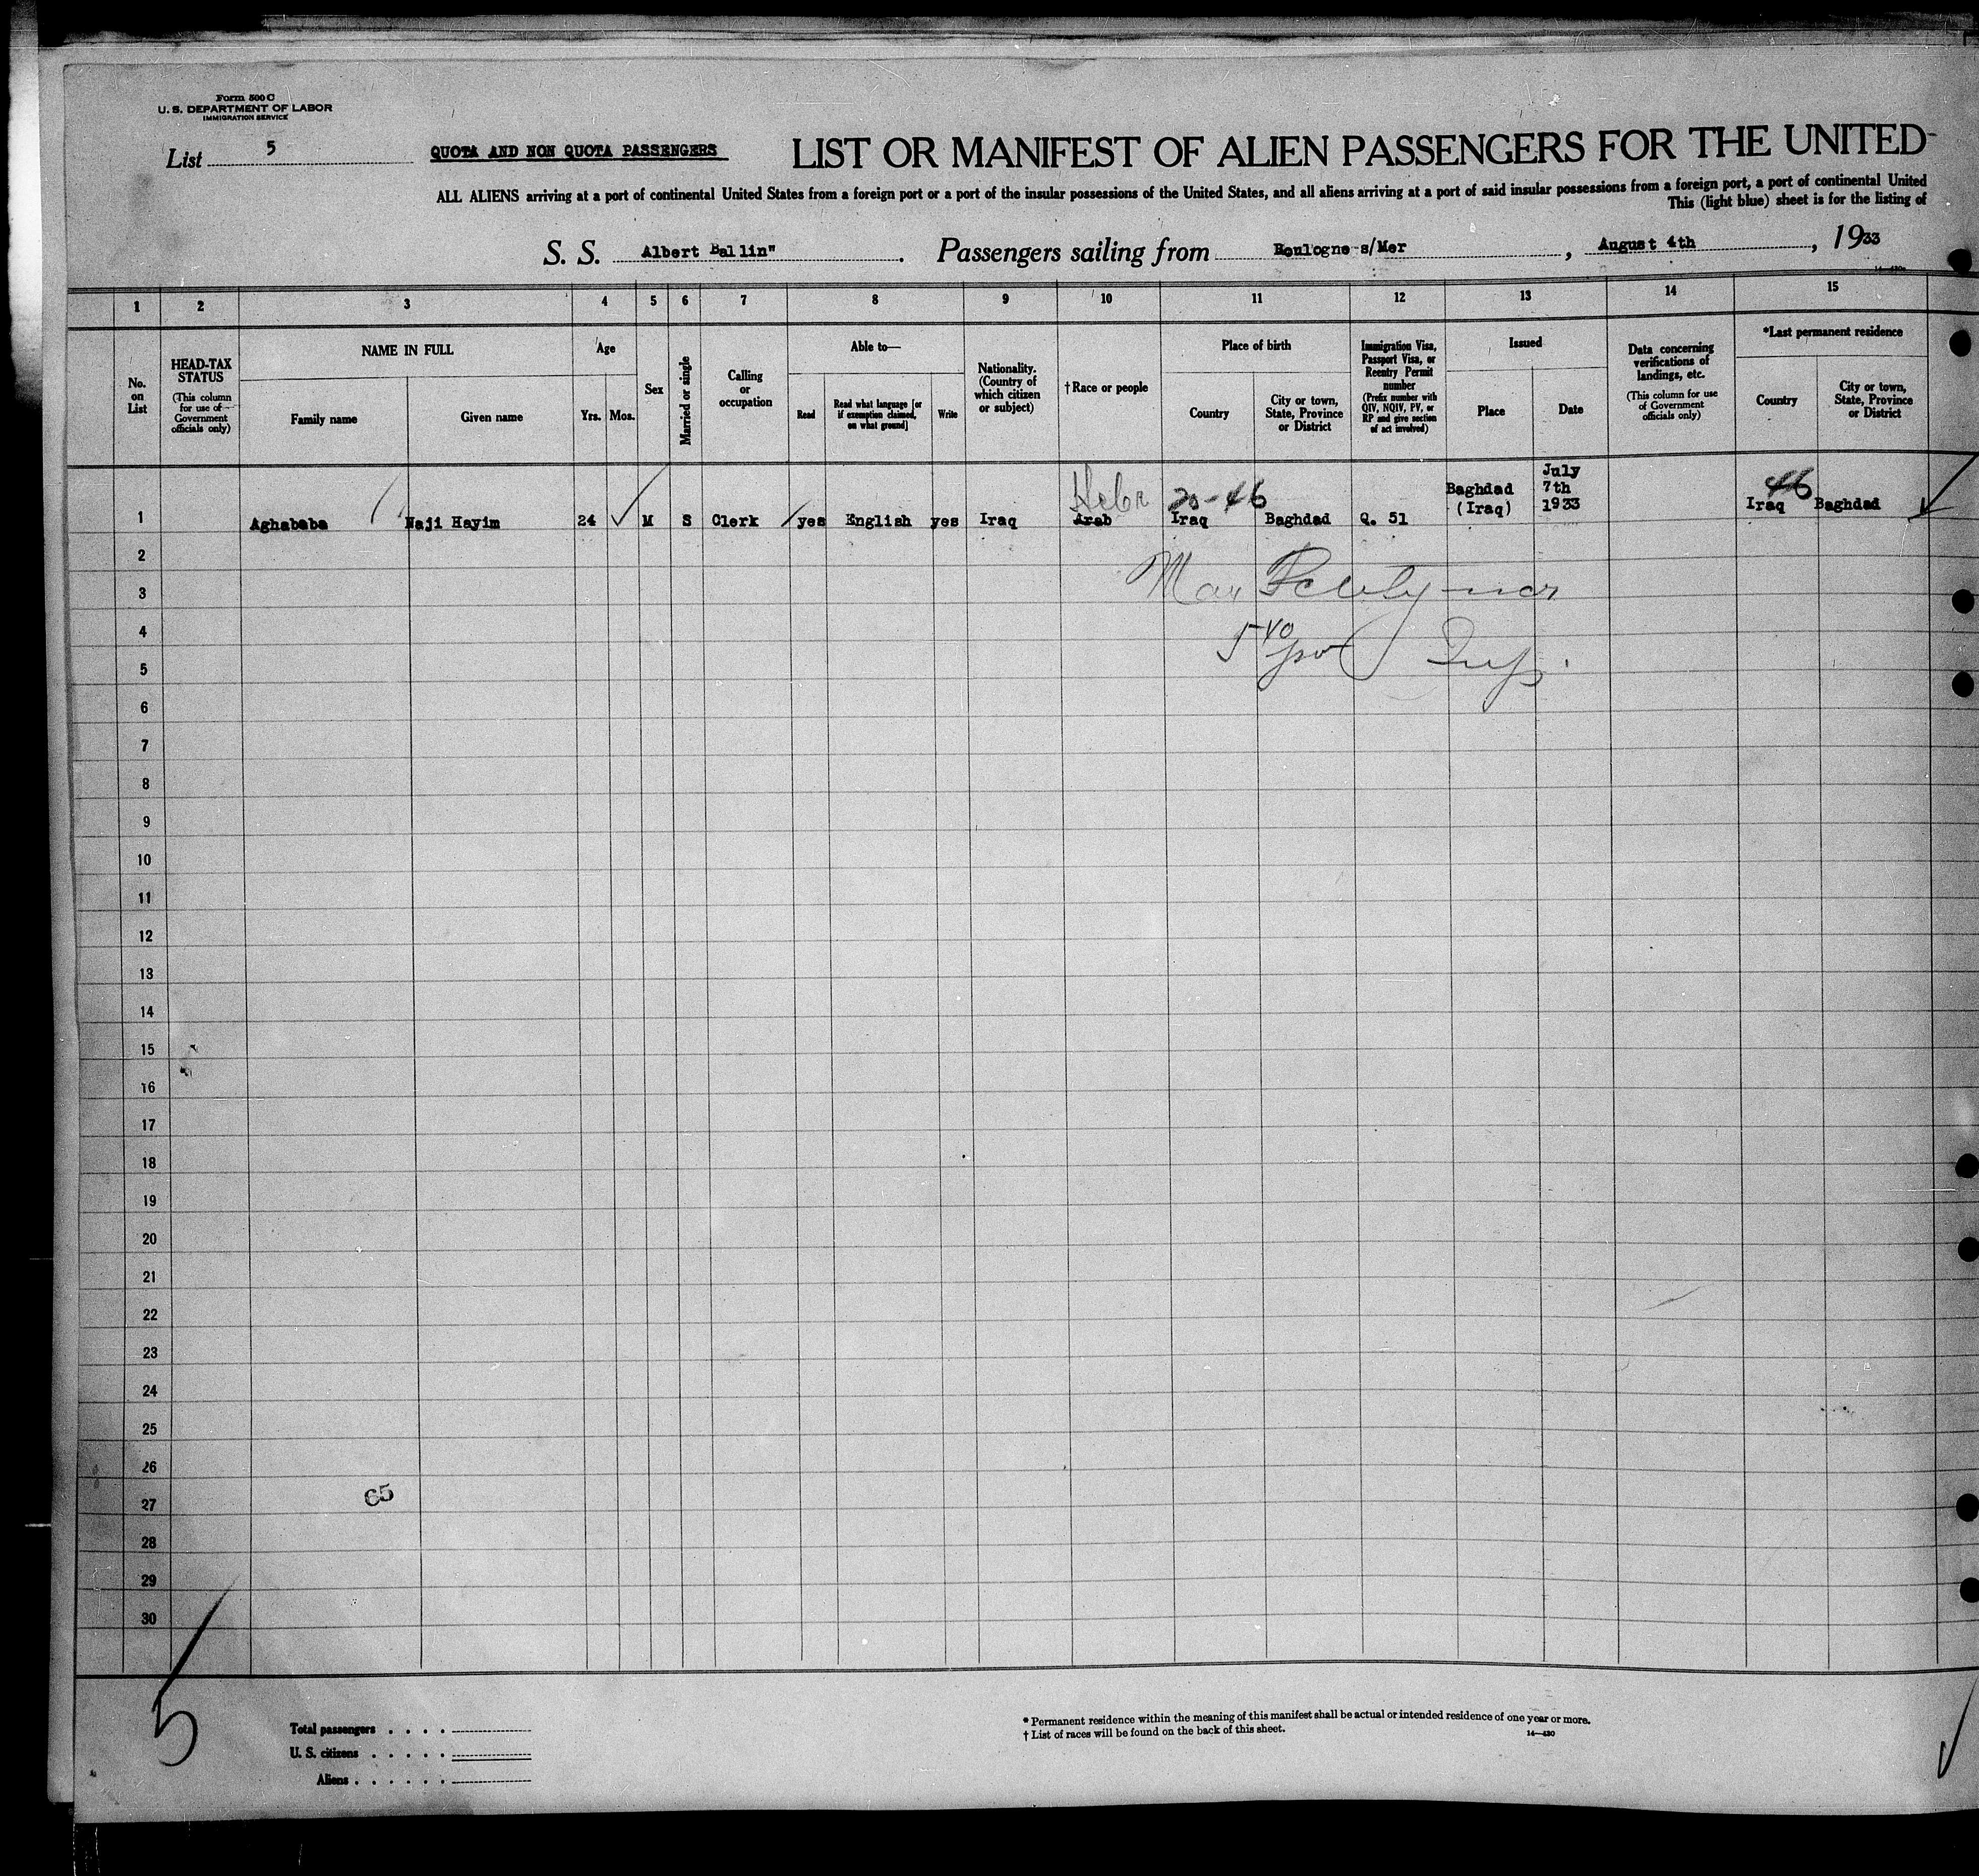 Form 500 C
U. S. DEPARTMENT OF LABOR
IMMIGRATION SERVICE
List 5
QUOTA AND NON QUOTA PASSENGERS
LIST OR MANIFEST OF ALIEN PASSENGERS FOR THE UNITED
ALL ALIENS arriving at a port of continental United States from a foreign port or a port of the insular possessions of the United States, and all aliens arriving at a port of said insular possessions from a foreign port, a port of continental United
This (light blue) sheet is for the listing of
S. S. Albert Ballin" . Passengers sailing from Boulogne s/Mer , August 4th , 1933
1 2 3 4 5 6 7 8 9 10 11 12 13 14 15
No. on List
HEAD-TAX STATUS
(This column for use of Government officials only)
NAME IN FULL
Family name
Given name
Age
Yrs. Mos.
Sex
Married or single
Calling or occupation
Able to—
Read
Read what language [or if exemption claimed, on what ground]
Write
Nationality. (Country of which citizen or subject)
†Race or people
Place of birth
Country
City or town, State, Province or District
Immigration Visa, Passport Visa, or Reentry Permit number
(Prefix number with QIV, NQIV, PV, or RP and give section of act involved)
Issued
Place
Date
Data concerning verifications of landings, etc.
(This column for use of Government officials only)
*Last permanent residence
Country
City or town, State, Province or District
Hebr 20-46 46
1 Aghababa Naji Hayim 24 M S Clerk yes English yes Iraq Arab Iraq Baghdad Q. 51 Baghdad (Iraq) July 7th 1933 Iraq Baghdad
2
3
4
5
6
7
8
9
10
11
12
13
14
15
16
17
18
19
20
21
22
23
24
25
26
65
27
28
29
30
5
Total passengers . . . .
U. S. citizens . . . . .
Aliens . . . . . .
* Permanent residence within the meaning of this manifest shall be actual or intended residence of one year or more.
† List of races will be found on the back of this sheet.
14—430